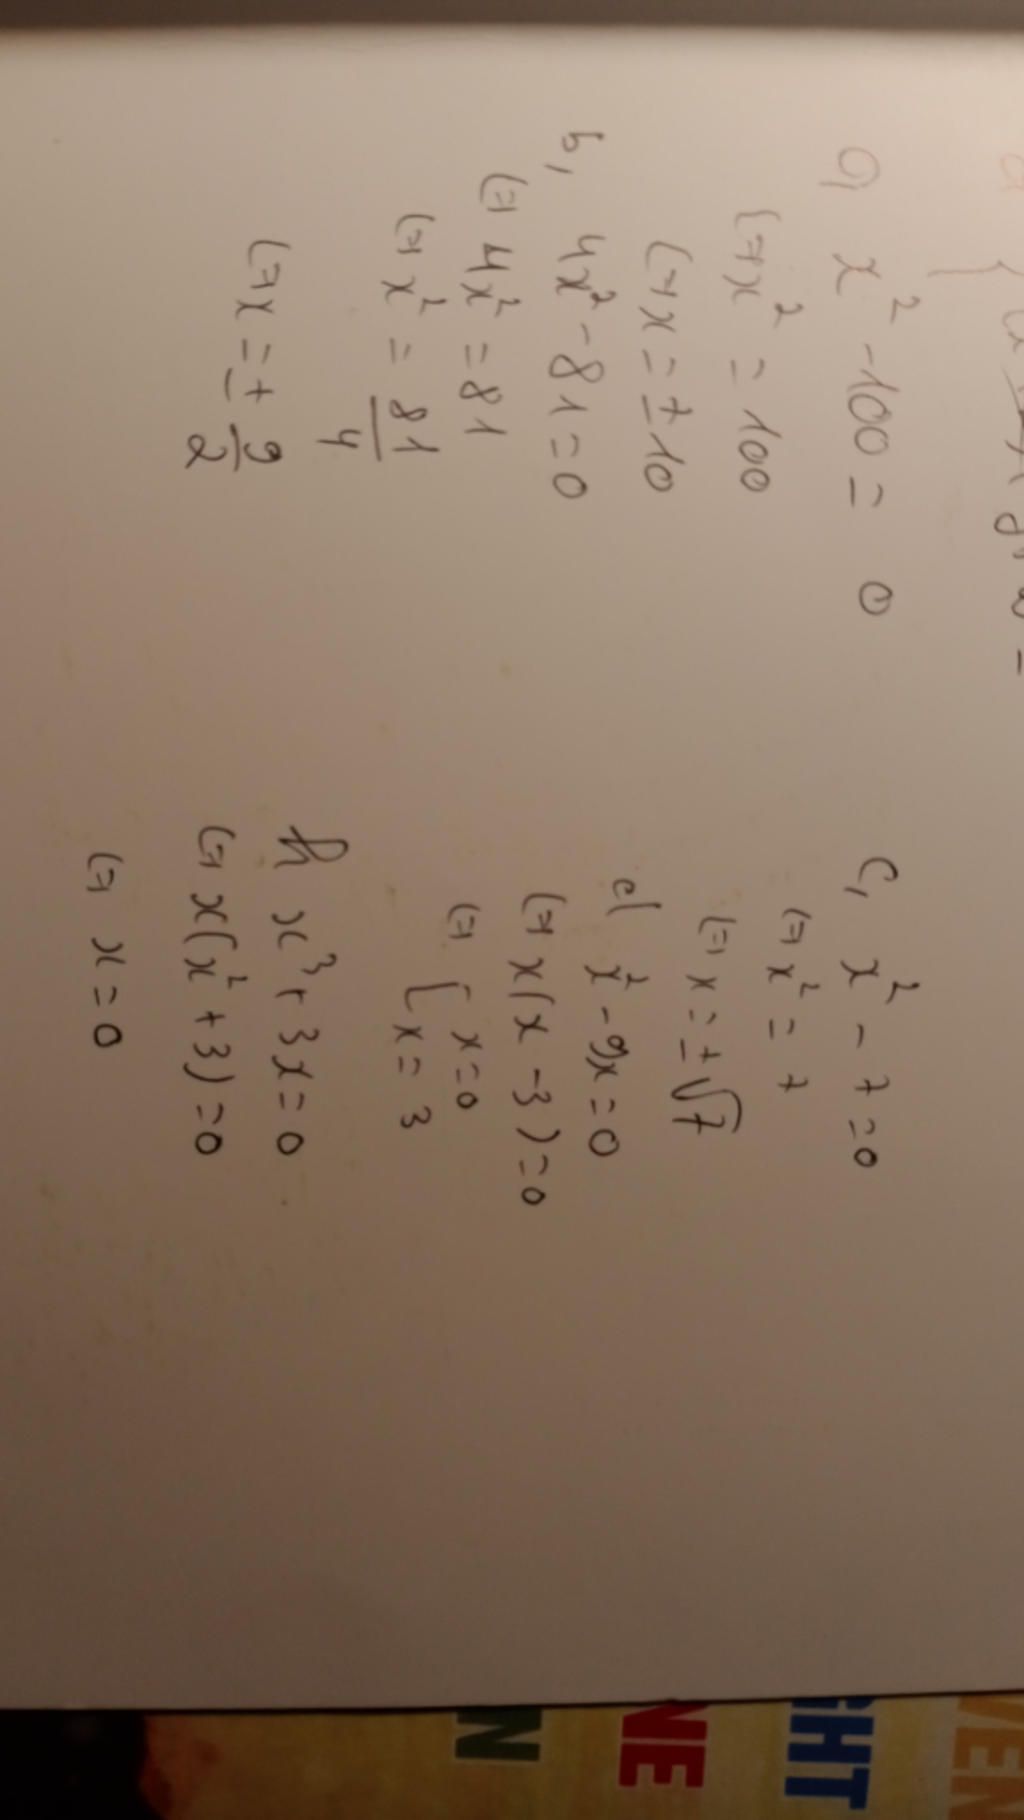 a, x² - 100 = 0
(=) x² = 100
(=) x = ± 10
b, 4x² - 81 = 0
(=) 4x² = 81
(=) x² = 81/4
(=) x = ± 9/2
c, x² - 7 = 0
(=) x² = 7
(=) x = ± √7
e/ x² - 9x = 0
(=) x(x - 3) = 0
(=) [ x = 0
x = 3
h x³ + 3x = 0
(=) x(x² + 3) = 0
(=) x = 0
VEN
GHT
NE
N